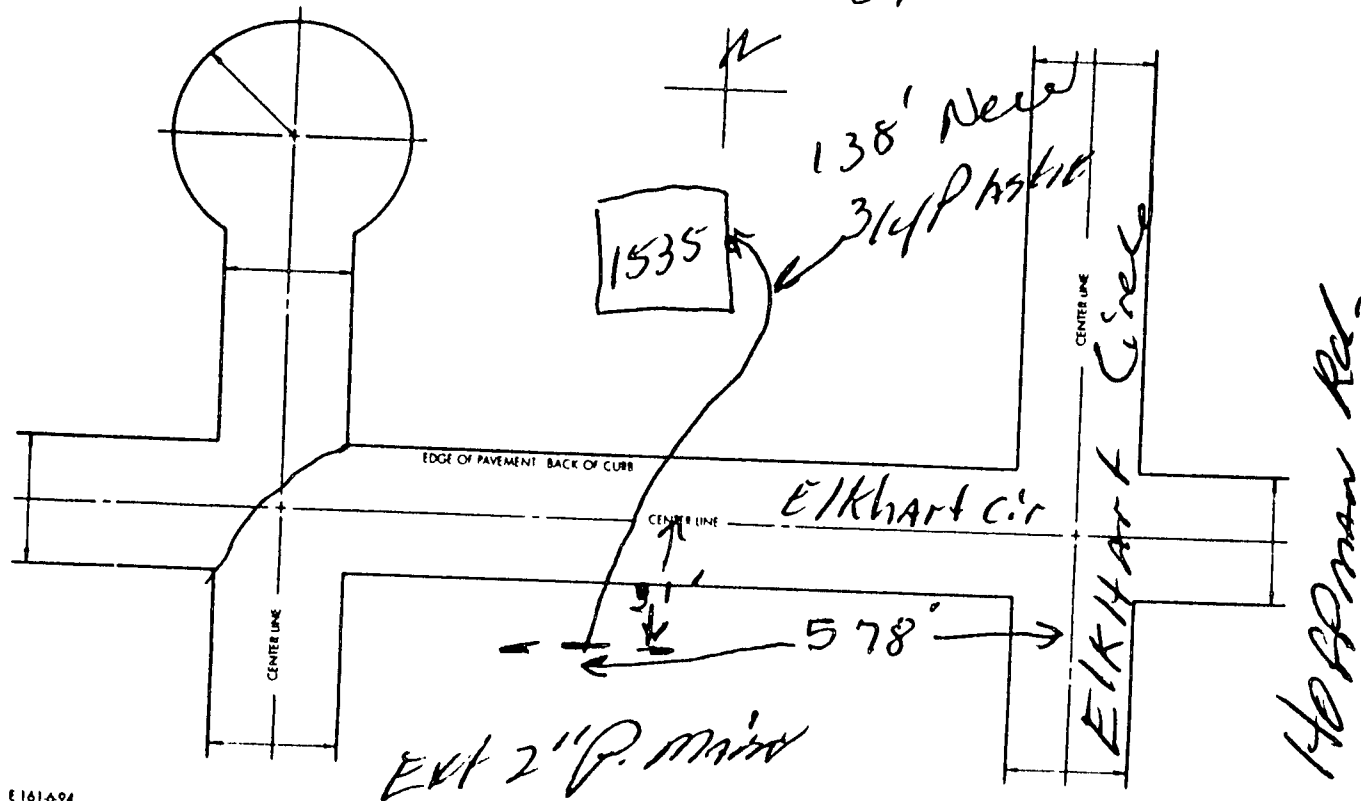 N
138' New
3/4 Plastic
1535
CENTER LINE
Elkhart Circle
Hoffman Rd.
EDGE OF PAVEMENT BACK OF CURB
Elkhart cir
CENTER LINE
CENTER LINE
578'
Ext 2" P. Main
E 161-6-94